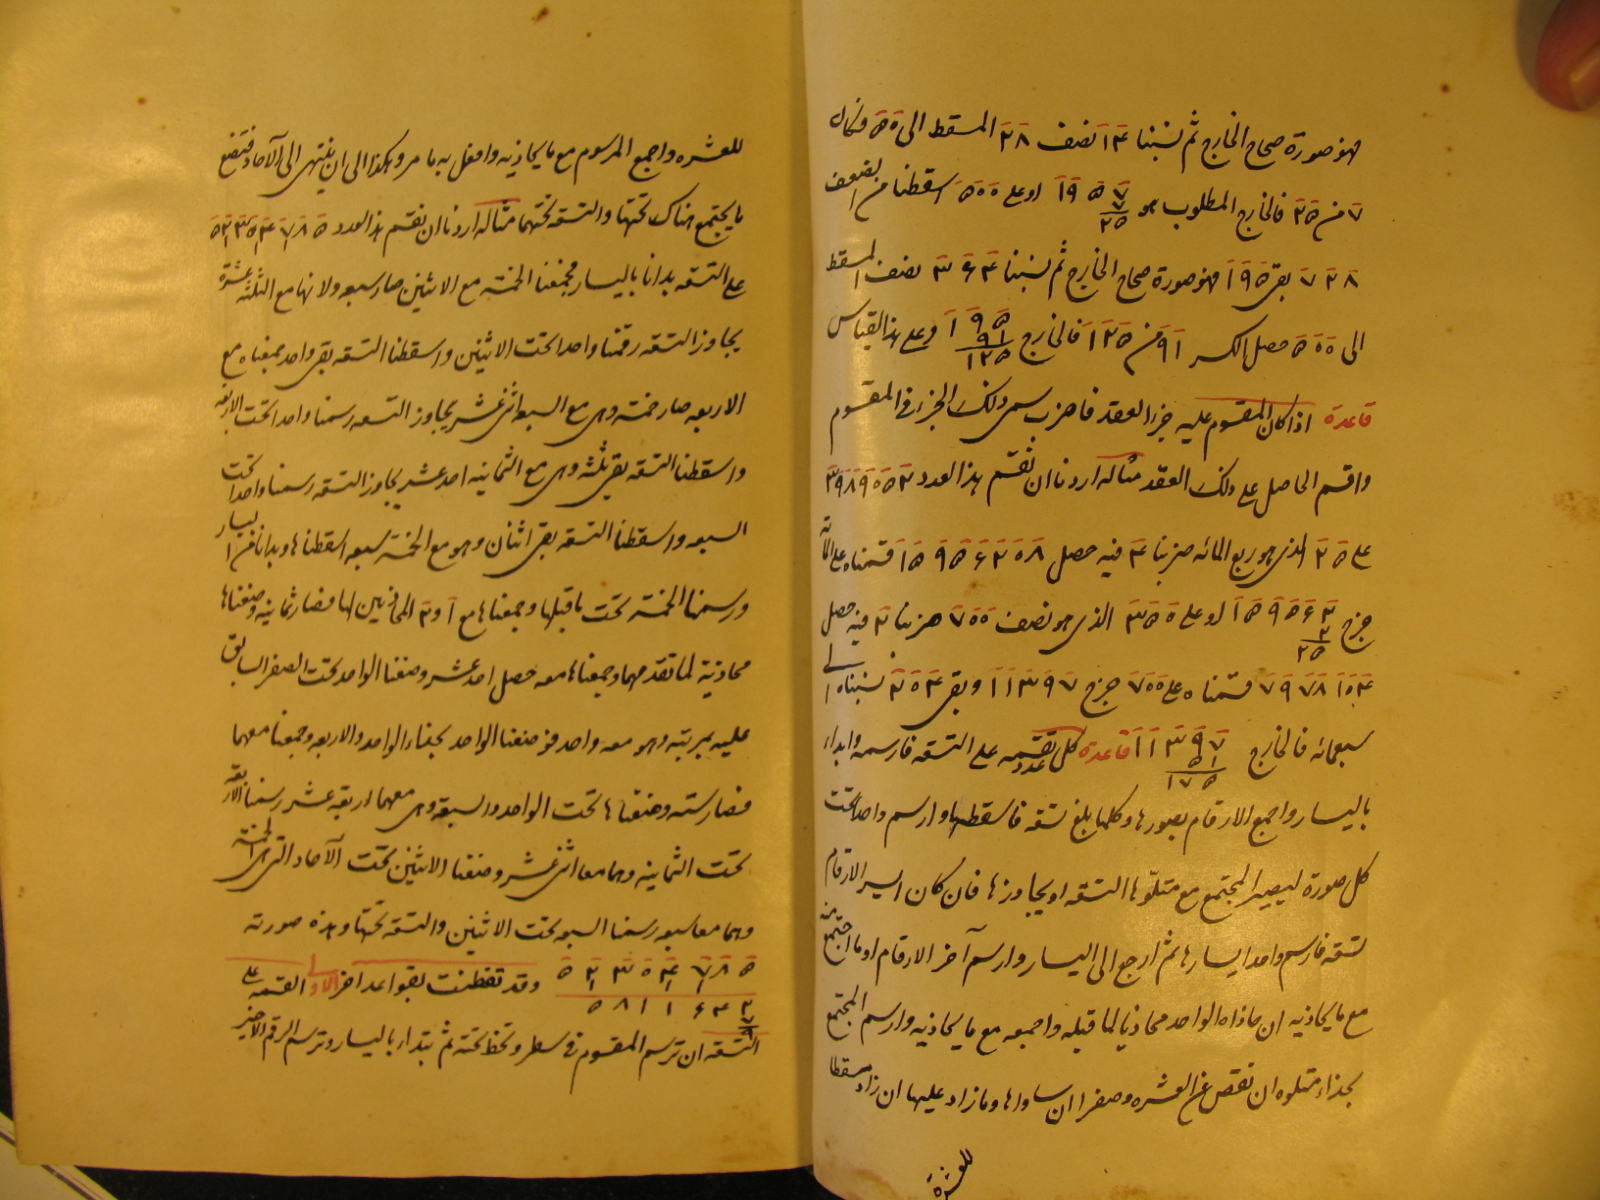 فهو صورة صحاح الخارج ثم نسبنا ١٤ نصف ٢٨ المسقط الى ٥٠ فكان
٧ من ٢٥ فالخارج المطلوب هو ١٩٥ ٧ ٢٥ او على ٥٠٠ اسقطنا من الضعف
٧٢٨ بقى ١٩٥ فهو صورة صحاح الخارج ثم نسبنا ٣٦٤ نصف المسقط
الى ٥٠٠ حصل الكسر ٩١ من ١٢٥ فالخارج ١٩٥ ٩١ ١٢٥ وعلى هذا القياس
قاعدة اذا كان المقسوم عليه جزء العقد فاضرب سمى ذلك الجزء فى المقسوم
واقسم الحاصل على ذلك العقد مثاله اردنا ان نقسم هذا العدد ٣٩٨٩٠٥٢
على ٢٥ الذى هو ربع المائه ضربنا ٤ فيه حصل ١٥٩٥٦٢٠٨ قسمناه على المائه
خرج ١٥٩٥٦٢ ٢ ٢٥ او على ٣٥٠ الذى هو نصف ٧٠٠ ضربنا ٢ فيه حصل
٧٩٧٨١٠٤ قسمناه على ٧٠٠ خرج ١١٣٩٧ وبقى ٢٠٤ نسبناه الى
سبعمائه فالخارج ١١٣٩٧ ٥١ ١٧٥ قاعدة كل عدد تقسمه على التسعه فارسمه وابداء
باليسار واجمع الارقام بصورها وكلما بلغ تسعه فاسقطها وارسم واحدا تحت
كل صورة ليصير المجتمع مع متلوها التسعه او يجاوزها فان كان ايسر الارقام
تسعه فارسم واحدا يسارها ثم ارجع الى اليسار وارسم آخر الارقام او ما اجتمع منه
مع ما يحاذيه ان حاذاه الواحد محاذيا لما قبله واجمعه مع ما يحاذيه وارسم المجتمع
بحذاء متلوه ان نقص عن العشره وصفرا ان ساواها وما زاد عليها ان زاد مسقطا
للعشرة
للعشره واجمع المرسوم مع ما يحاذيه وافعل به ما مر وهكذا الى ان ينتهى الى الآحاد فتضع
ما يجتمع هناك تحتها والتسعه تحتهما مثاله اردنا ان نقسم هذا العدد ٥٢٣٥٤٧٨٥
على التسعه بدانا باليسار فجمعنا الخمسه مع الاثنين صار سبعه ولانها مع الثلثه عشرة
يجاوز التسعه رقمنا واحدا تحت الاثنين واسقطنا التسعه بقى واحد جمعناه مع
الاربعه صار خمسه وهى مع السبعه اثنى عشر يجاوز التسعه رسمنا واحدا تحت الاربعه
واسقطنا التسعه بقى ثلثه وهى مع الثمانيه احد عشر يجاوز التسعه رسمنا واحدا تحت
السبعه واسقطنا التسعه بقى اثنان وهو مع الخمسه سبعه اسقطناها وبدانا من اليسار
ورسمنا الخمسة تحت ما قبلها وجمعناها مع ١ و ٢ المحاذيين لها فصار ثمانيه وضعناها
محاذية لما تقدمهما وجمعناها معه حصل احد عشر وضعنا الواحد تحت الصفر السابق
عليه بمرتبته وهو معه واحد فوضعنا الواحد بحذاء الواحد والاربعه وجمعنا معهما
فصار سته وضعناها تحت الواحد والسبعه وهى معهما اربعه عشر رسمنا الاربعه
تحت الثمانيه وهما معا اثنى عشر وضعنا الاثنين تحت الآحاد التى هى الخمسة
وهما معا سبعه رسمنا السبعه تحت الاثنين والتسعه تحتها وهذه صورته
٥ ٢ ٣ ٠ ٤ ٧ ٨ ٥ وقد تفطنت بقواعد اخر الاولى القسمه على
٥ ٨ ١ ١ ٦ ٤ ٢
٧
٩
التسعه ان ترسم المقسوم فى سطر وتخط تحته ثم تبتداء باليسار وترسم الرقم الاخير